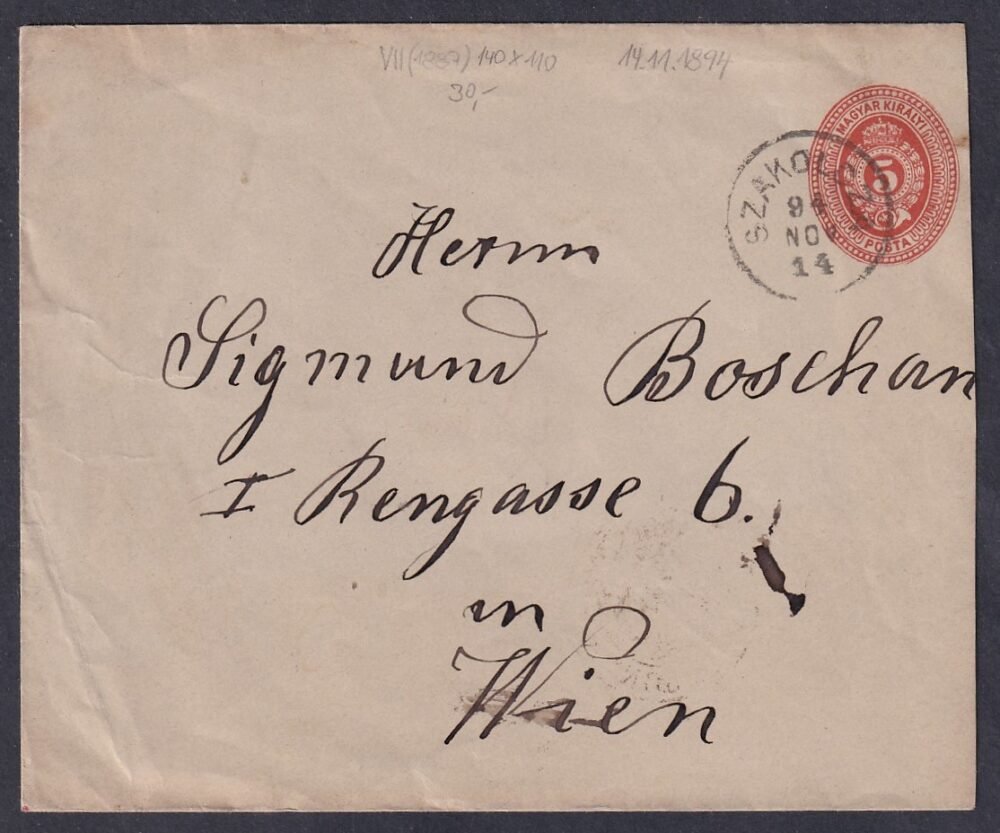 VII (1887) 140 x 110 14.11.1894
30,-
MAGYAR KIRÁLYI
5
POSTA
94
NOV
14
Herrn
Sigmund Boschan
I Rengasse 6.
in
Wien